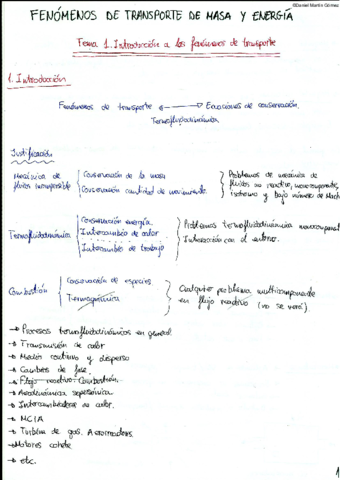 ©Daniel Martín Gómez
FENÓMENOS DE TRANSPORTE DE MASA Y ENERGÍA
Tema 1. Introducción a los fenómenos de transporte
1. Introducción
Fenómenos de transporte ← → Ecuaciones de conservación.
Termofluidodinámica
Justificación
Mecánica de fluidos incompresible { Conservación de la masa
Conservación cantidad de movimiento. } Problemas de mecánica de fluidos no reactivo, monocomponente, isotermo y bajo número de Mach
Termofluidodinámica { Conservación energía.
Intercambio de calor
Intercambio de trabajo } Problemas termofluidodinámica monocomponente
Interacción con el entorno.
Combustión { Conservación de especies
Termoquímica } Cualquier problema multicomponente en flujo reactivo (no se verá).
→ Procesos termofluidodinámicos en general
→ Transmisión de calor
→ Medio continuo y disperso
→ Cambios de fase.
→ Flujo reactivo. Combustión.
→ Aerodinámica supersónica
→ Intercambiadores de calor.
→ MCIA
→ Turbina de gas. Aerorreactores.
→ Motores cohete
→ etc.
1